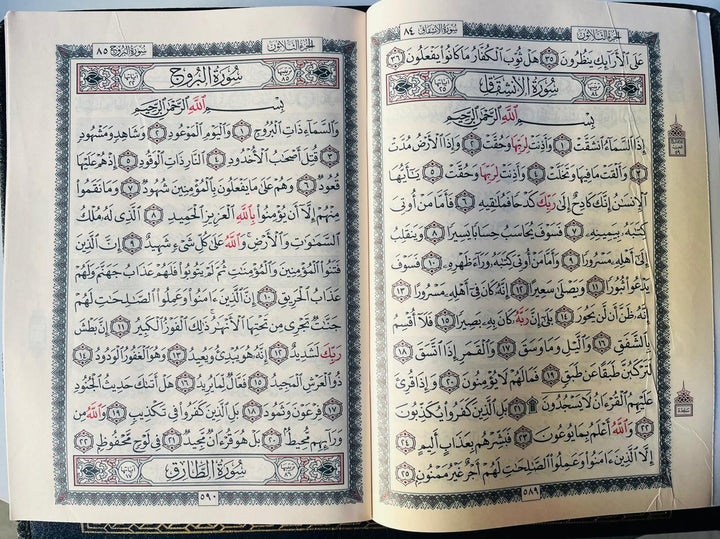 سُورَةُ الانشِقَاقِ ٨٤
الجُزْءُ الثَّلَاثُونَ
عَلَى ٱلْأَرَآئِكِ يَنظُرُونَ ٣٥ هَلْ ثُوِّبَ ٱلْكُفَّارُ مَا كَانُوا۟ يَفْعَلُونَ ٣٦
سُورَةُ الانشِقَاقِ
بِسْمِ ٱللَّهِ ٱلرَّحْمَٰنِ ٱلرَّحِيمِ
إِذَا ٱلسَّمَآءُ ٱنشَقَّتْ ١ وَأَذِنَتْ لِرَبِّهَا وَحُقَّتْ ٢ وَإِذَا ٱلْأَرْضُ مُدَّتْ
٣ وَأَلْقَتْ مَا فِيهَا وَتَخَلَّتْ ٤ وَأَذِنَتْ لِرَبِّهَا وَحُقَّتْ ٥ يَٰٓأَيُّهَا
ٱلْإِنسَٰنُ إِنَّكَ كَادِحٌ إِلَىٰ رَبِّكَ كَدْحًا فَمُلَٰقِيهِ ٦ فَأَمَّا مَنْ أُوتِىَ
كِتَٰبَهُۥ بِيَمِينِهِۦ ٧ فَسَوْفَ يُحَاسَبُ حِسَابًا يَسِيرًا ٨ وَيَنقَلِبُ
إِلَىٰٓ أَهْلِهِۦ مَسْرُورًا ٩ وَأَمَّا مَنْ أُوتِىَ كِتَٰبَهُۥ وَرَآءَ ظَهْرِهِۦ ١٠ فَسَوْفَ
يَدْعُوا۟ ثُبُورًا ١١ وَيَصْلَىٰ سَعِيرًا ١٢ إِنَّهُۥ كَانَ فِىٓ أَهْلِهِۦ مَسْرُورًا ١٣
إِنَّهُۥ ظَنَّ أَن لَّن يَحُورَ ١٤ بَلَىٰٓ إِنَّ رَبَّهُۥ كَانَ بِهِۦ بَصِيرًا ١٥ فَلَآ أُقْسِمُ
بِٱلشَّفَقِ ١٦ وَٱلَّيْلِ وَمَا وَسَقَ ١٧ وَٱلْقَمَرِ إِذَا ٱتَّسَقَ ١٨
لَتَرْكَبُنَّ طَبَقًا عَن طَبَقٍ ١٩ فَمَا لَهُمْ لَا يُؤْمِنُونَ ٢٠ وَإِذَا قُرِئَ
عَلَيْهِمُ ٱلْقُرْءَانُ لَا يَسْجُدُونَ ۩ ٢١ بَلِ ٱلَّذِينَ كَفَرُوا۟ يُكَذِّبُونَ
٢٢ وَٱللَّهُ أَعْلَمُ بِمَا يُوعُونَ ٢٣ فَبَشِّرْهُم بِعَذَابٍ أَلِيمٍ ٢٤
إِلَّا ٱلَّذِينَ ءَامَنُوا۟ وَعَمِلُوا۟ ٱلصَّٰلِحَٰتِ لَهُمْ أَجْرٌ غَيْرُ مَمْنُونٍۭ ٢٥
٥٨٩
الجُزْءُ الثَّلَاثُونَ
سُورَةُ البُرُوجِ ٨٥
سُورَةُ البُرُوجِ
بِسْمِ ٱللَّهِ ٱلرَّحْمَٰنِ ٱلرَّحِيمِ
وَٱلسَّمَآءِ ذَاتِ ٱلْبُرُوجِ ١ وَٱلْيَوْمِ ٱلْمَوْعُودِ ٢ وَشَاهِدٍ وَمَشْهُودٍ
٣ قُتِلَ أَصْحَٰبُ ٱلْأُخْدُودِ ٤ ٱلنَّارِ ذَاتِ ٱلْوَقُودِ ٥ إِذْ هُمْ عَلَيْهَا
قُعُودٌ ٦ وَهُمْ عَلَىٰ مَا يَفْعَلُونَ بِٱلْمُؤْمِنِينَ شُهُودٌ ٧ وَمَا نَقَمُوا۟
مِنْهُمْ إِلَّآ أَن يُؤْمِنُوا۟ بِٱللَّهِ ٱلْعَزِيزِ ٱلْحَمِيدِ ٨ ٱلَّذِى لَهُۥ مُلْكُ
ٱلسَّمَٰوَٰتِ وَٱلْأَرْضِ ۚ وَٱللَّهُ عَلَىٰ كُلِّ شَىْءٍ شَهِيدٌ ٩ إِنَّ ٱلَّذِينَ
فَتَنُوا۟ ٱلْمُؤْمِنِينَ وَٱلْمُؤْمِنَٰتِ ثُمَّ لَمْ يَتُوبُوا۟ فَلَهُمْ عَذَابُ جَهَنَّمَ وَلَهُمْ
عَذَابُ ٱلْحَرِيقِ ١٠ إِنَّ ٱلَّذِينَ ءَامَنُوا۟ وَعَمِلُوا۟ ٱلصَّٰلِحَٰتِ لَهُمْ
جَنَّٰتٌ تَجْرِى مِن تَحْتِهَا ٱلْأَنْهَٰرُ ۚ ذَٰلِكَ ٱلْفَوْزُ ٱلْكَبِيرُ ١١ إِنَّ بَطْشَ
رَبِّكَ لَشَدِيدٌ ١٢ إِنَّهُۥ هُوَ يُبْدِئُ وَيُعِيدُ ١٣ وَهُوَ ٱلْغَفُورُ ٱلْوَدُودُ ١٤
ذُو ٱلْعَرْشِ ٱلْمَجِيدُ ١٥ فَعَّالٌ لِّمَا يُرِيدُ ١٦ هَلْ أَتَىٰكَ حَدِيثُ ٱلْجُنُودِ
١٧ فِرْعَوْنَ وَثَمُودَ ١٨ بَلِ ٱلَّذِينَ كَفَرُوا۟ فِى تَكْذِيبٍ ١٩ وَٱللَّهُ مِن
وَرَآئِهِم مُّحِيطٌۢ ٢٠ بَلْ هُوَ قُرْءَانٌ مَّجِيدٌ ٢١ فِى لَوْحٍ مَّحْفُوظٍۭ ٢٢
سُورَةُ الطَّارِقِ
٥٩٠